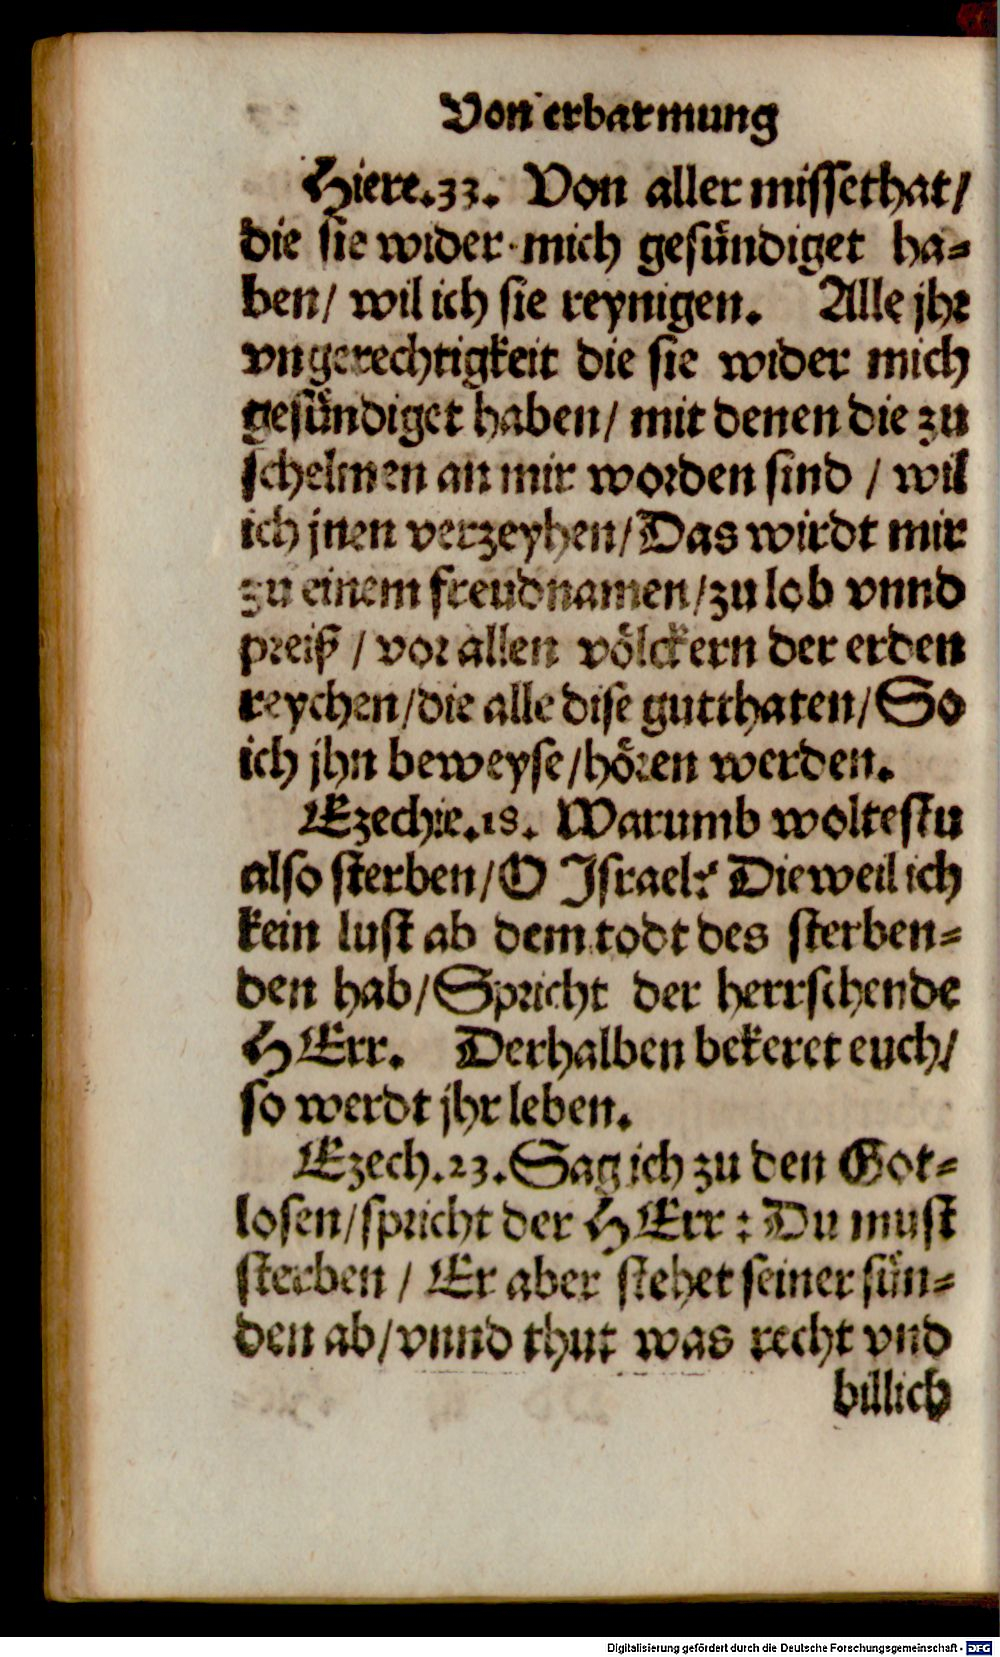 Von erbarmung
Hiere.33. Von aller missethat/
die sie wider mich gesündiget ha⸗
ben/ wil ich sie reynigen. Alle jhr
vngerechtigkeit die sie wider mich
gesündiget haben/ mit denen die zu
schelmen an mir worden sind / wil
ich jnen verzeyhen/Das wirdt mir
zu einem freudnamen/zu lob vnnd
preiß / vor allen völckern der erden
reychen/die alle dise gutthaten/So
ich jhn beweyse/hören werden.
Ezechie.18. Warumb woltestu
also sterben/O Israel? Dieweil ich
kein lust ab dem todt des sterben⸗
den hab/Spricht der herrschende
HErr. Derhalben bekeret euch/
so werdt jhr leben.
Ezech.23. Sag ich zu den Got⸗
losen/spricht der HErr : Du must
sterben / Er aber stehet seiner sün⸗
den ab/vnnd thut was recht vnd
billich
Digitalisierung gefördert durch die Deutsche Forschungsgemeinschaft - DFG